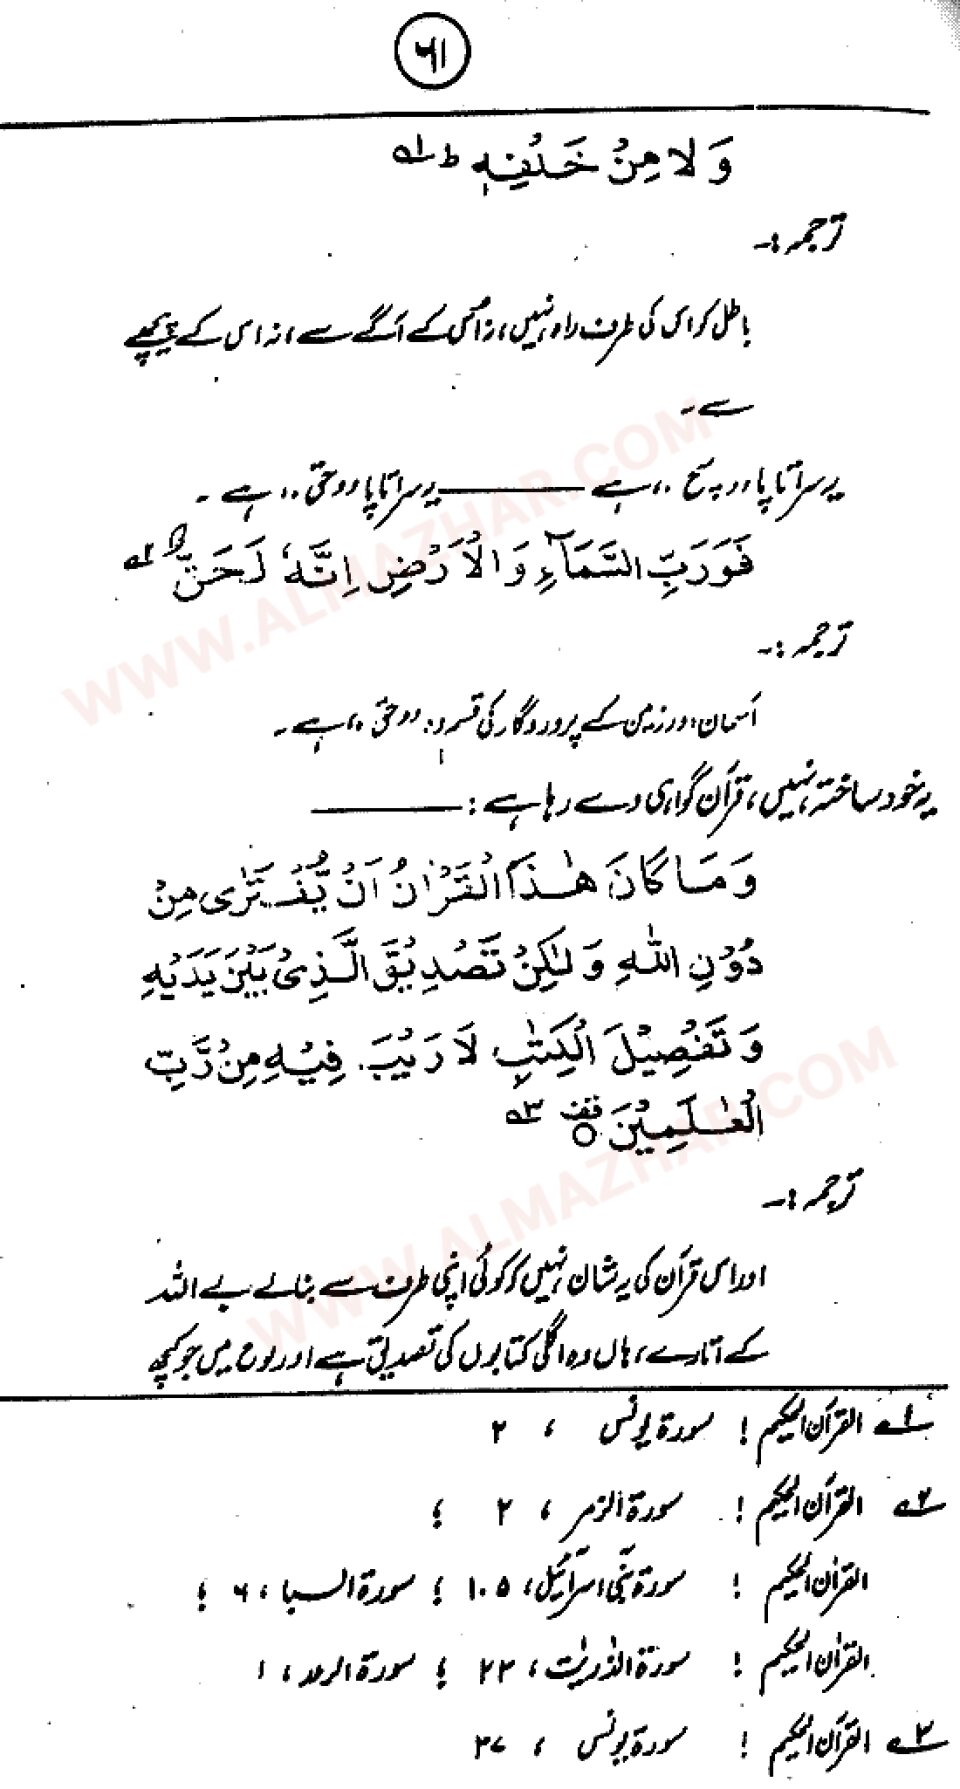 ۶۱
وَلَا مِنْ خَلْفِهٖ ط ؂۱
ترجمہ :۔
باطل کو اس کی طرف راہ نہیں، نہ اس کے آگے سے، نہ اس کے پیچھے
سے۔
یہ سراتاپا ،،سچ ،، ہے ——— یہ سراتاپا ،،حق ،، ہے ۔
فَوَرَبِّ السَّمَآءِ وَالْاَرْضِ اِنَّهٗ لَحَقٌّ ؂۲
ترجمہ :۔
آسمان اور زمین کے پروردگار کی قسم وہ ،،حق ،، ہے ۔
یہ خود ساختہ نہیں، قرآن گواہی دے رہا ہے : ———
وَمَا كَانَ هٰذَا الْقُرْاٰنُ اَنْ يُّفْتَرٰى مِنْ
دُوْنِ اللّٰهِ وَلٰكِنْ تَصْدِيْقَ الَّذِىْ بَيْنَ يَدَيْهِ
وَتَفْصِيْلَ الْكِتٰبِ لَا رَيْبَ فِيْهِ مِنْ رَّبِّ
الْعٰلَمِيْنَ ○ قف ؂۳
ترجمہ :۔
اور اس قرآن کی یہ شان نہیں کہ کوئی اپنی طرف سے بنالے بے اللہ
کے اتارے، ہاں وہ اگلی کتابوں کی تصدیق ہے اور لوح میں جو کچھ
؂۱ القرآن الحکیم ! سورۃ یونس ، ۲
؂۲ القرآن الحکیم ! سورۃ الزمر ، ۲ ؛
القرآن الحکیم ! سورۃ بنی اسرآئیل، ۱۰۵ ؛ سورۃ السبا ، ۶ ؛
القرآن الحکیم ! سورۃ الذٰریٰت ، ۲۳ ؛ سورۃ الرعد ، ۱
؂۳ القرآن الحکیم ! سورۃ یونس ، ۳۷
WWW.ALMAZHAR.COM
WWW.ALMAZHAR.COM